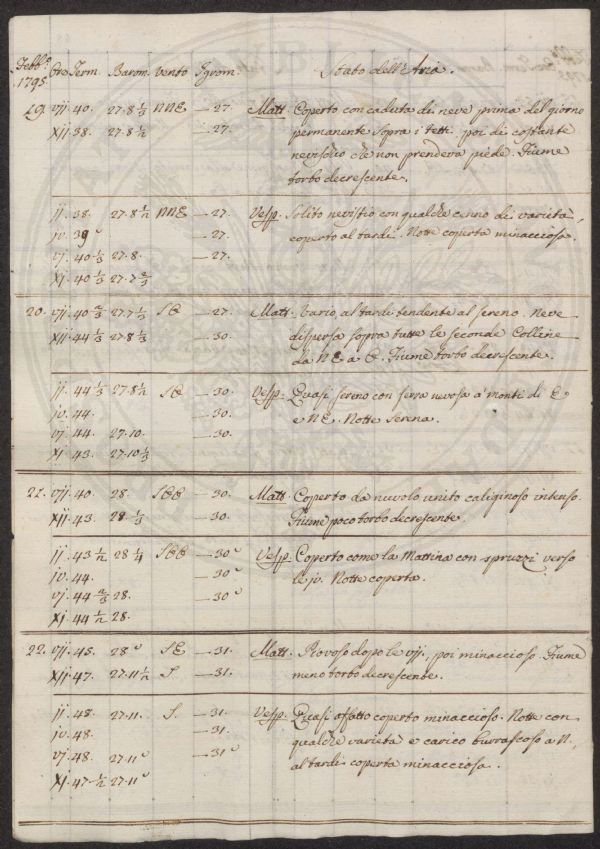 Febb.º
1795. Ore Term. Barom. Vento Igrom. Stato dell'Aria.
19. vij. 40. 27.8 1/3 NNE —27. Matt. Coperto con caduta di neve prima del giorno
xij. 38. 27.8 1/2 —27. permanente sopra i tetti. poi di costante
nevischio che non prendeva piede. Fiume
torbo decrescente.
ij. 38. 27.8 1/2 NNE —27. Vesp. Solito nevistio con qualche cenno di varietà,
iv. 39 —27. coperto al tardi. Notte coperta minacciosa.
vj. 40 1/3 27.8. —27.
xj. 40 1/3 27.7 2/3
20. vij. 40 2/3 27.7 1/3 SE —27. Matt. Vario al tardi tendente al sereno. Neve
xij. 44 1/3 27.8 1/3 —30. dispersa sopra tutte le seconde Colline
da NE a E. Fiume torbo decrescente.
ij. 44 1/3 27.8 1/2 SE —30. Vesp. Quasi sereno con serra nevosa a' monti di E
iv. 44. —30. e NE. Notte Serena.
vj. 44. 27.10. —30.
xj. 43. 27.10 1/3
21. vij. 40. 28. SEE —30. Matt. Coperto da nuvolo unito caliginoso intenso.
xij. 43. 28 1/3 —30. Fiume poco torbo decrescente.
ij. 43 1/2 28 1/4 SEE —30 Vesp. Coperto come la Mattina con spruzzi verso
iv. 44. —30 le iv. Notte coperta.
vj. 44 2/3 28. —30
xj. 44 1/2 28.
22. vij. 45. 28 SE —31. Matt. Piovoso dopo le vij. poi minaccioso. Fiume
xij. 47. 27.11 1/2 S. —31. meno torbo decrescente.
ij. 48. 27.11. S. —31. Vesp. Quasi affatto coperto minaccioso. Notte con
iv. 48. —31. qualche varietà e carico burrascoso a N.
vj. 48. 27.11 —31 al tardi coperta minacciosa.
xj. 47 1/2 27.11